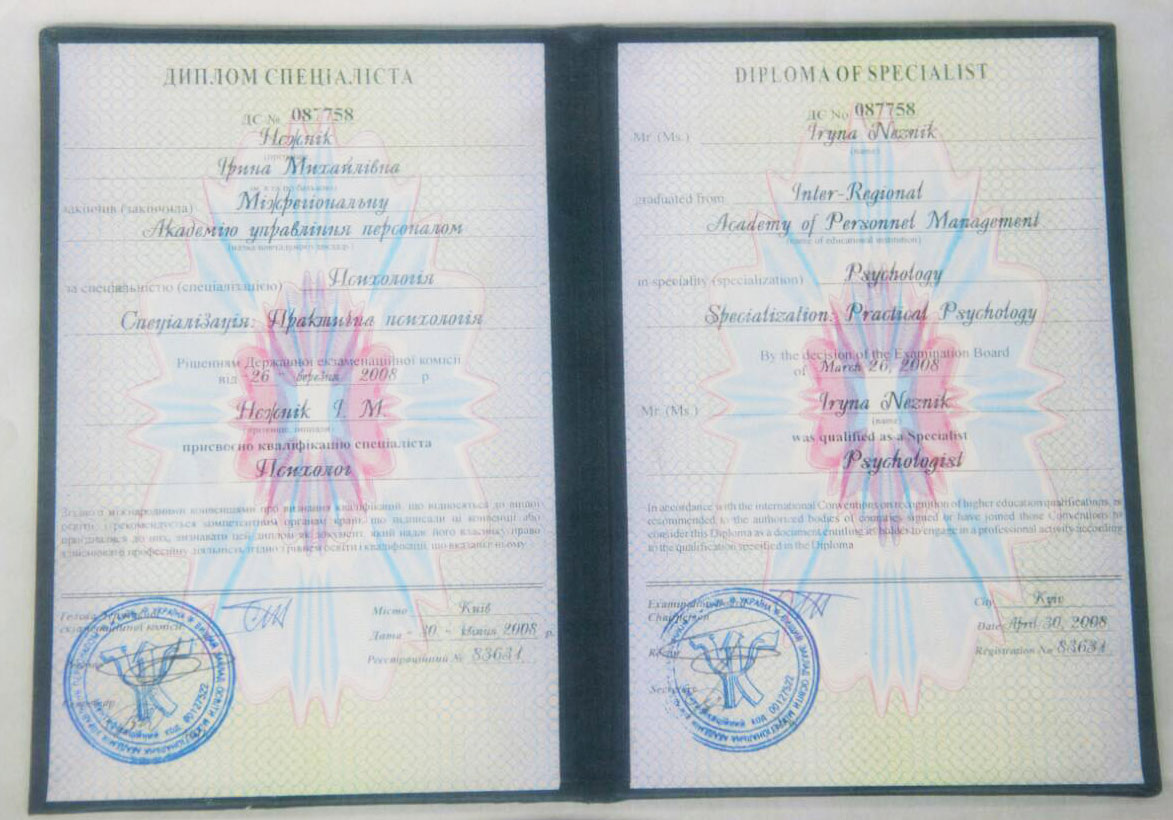 ДИПЛОМ СПЕЦІАЛІСТА
ДС № 087758
Нєжнік
Ірина Михайлівна
закінчив (закінчила) Міжрегіональну
Академію управління персоналом
за спеціальністю (спеціалізацією) Психологія
Спеціалізація: Практична психологія
Рішенням Державної екзаменаційної комісії
від "26" березня 2008 р
Нєжнік І. М.
присвоєно кваліфікацію спеціаліста
Психолог
Згідно з міжнародними конвенціями про визнання кваліфікацій, що відносяться до вищої
освіти, і рекомендується компетентним органам країн, що підписали ці конвенції або
приєдналися до них, визнавати цей диплом як документ, який надає його власнику право
здійснювати професійну діяльність згідно з рівнем освіти і кваліфікації, що вказані ньому
Голова
екзаменаційної комісії
Місто Київ
Дата - 30 - 2008 р.
Реєстраційний № 83631
DIPLOMA OF SPECIALIST
ДС No 087758
Mr. (Ms.) Iryna Neznik
(name)
graduated from Inter-Regional
Academy of Personnel Management
(name of educational institution)
in speciality (specialization) Psychology
Specialization: Practical Psychology
By the decision of the Examination Board
of March 26, 2008
Mr. (Ms.) Iryna Neznik
(name)
was qualified as a Specialist
Psychologist
In accordance with the international Conventions on recognition of higher education qualifications, is
recommended to the authorized bodies of countries signed or have joined those Conventions to
consider this Diploma as a document entitling its bodies to engage in a professional activity according
to the qualification specified in the Diploma
Chairperson
City Kyiv
Date April 30, 2008
Registration No 83631